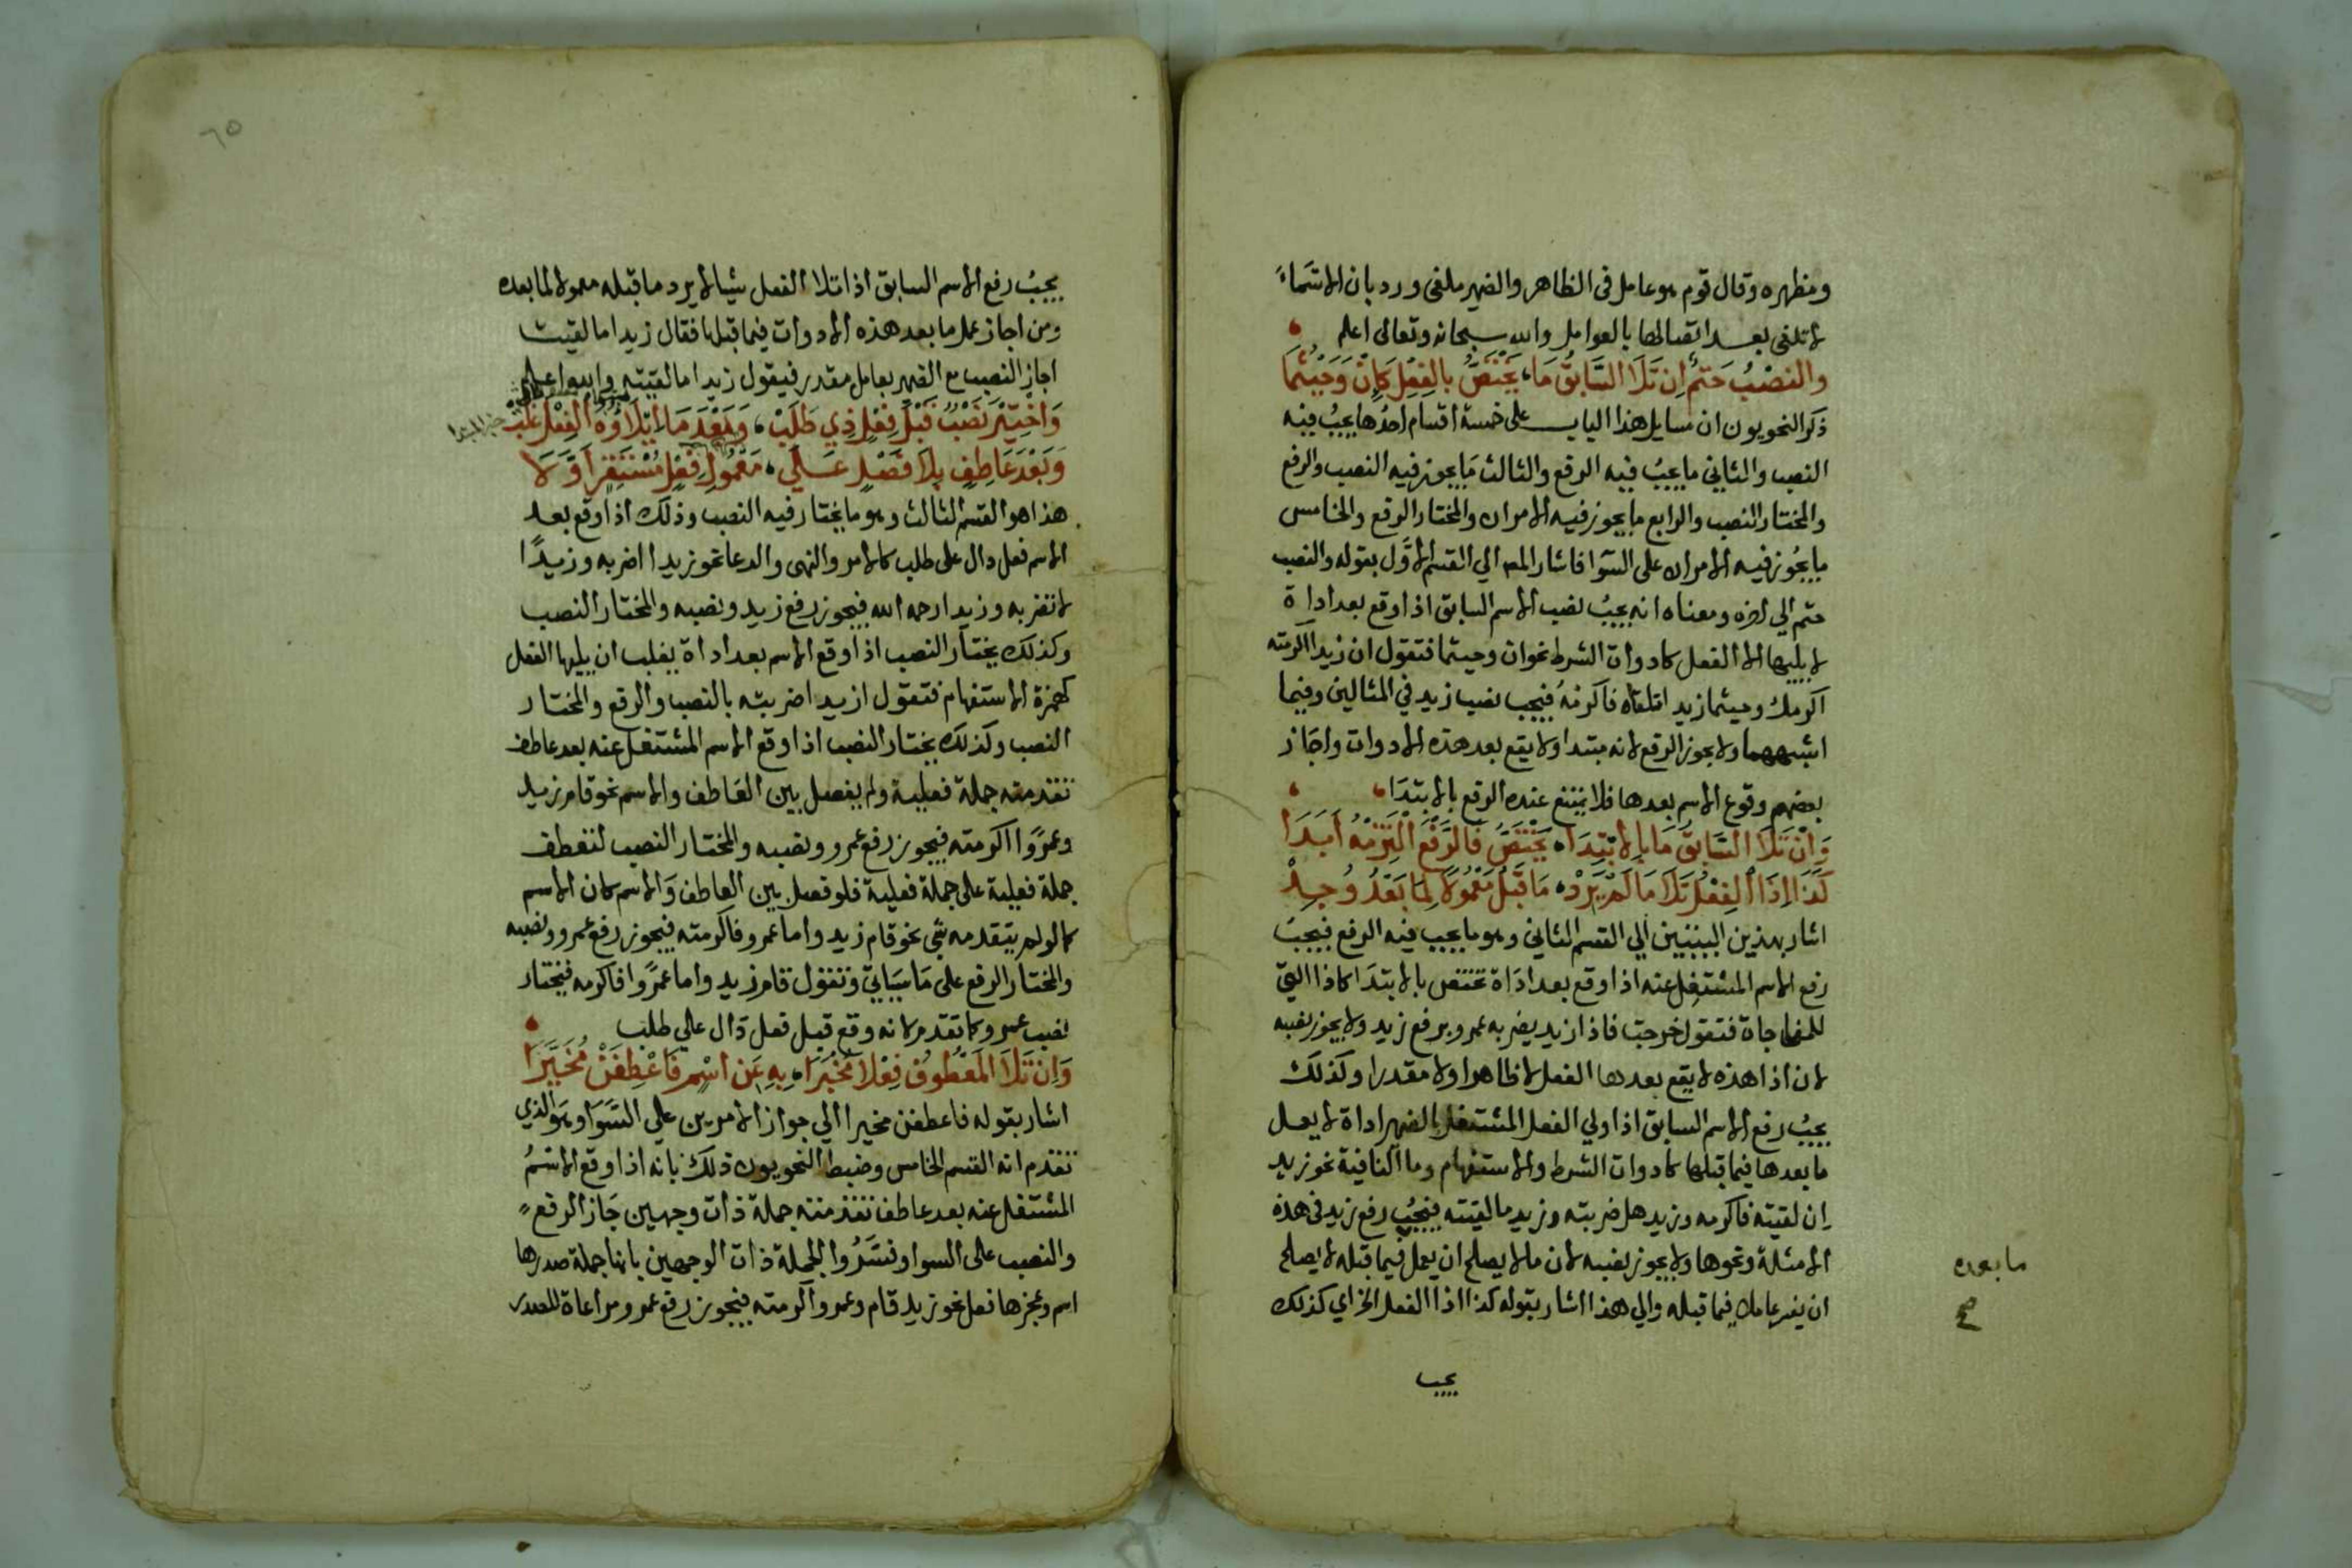 ومظهره وقال قوم هو عامل في الظاهر والضمير ملغى ورد بان الاسَماءَ
لا تلغى بعد اتصالها بالعوامل والله سبحانه وتعالى اعلم
والنصْبُ حَتمٌ اِن تَلَا السَّابِقُ مَا، يَخْتَصُّ بالِفِعْلِ كَاِنْ وَحَيْثُمَا
ذكر النحويون ان مسايل هذا الباب على خمسة اقسام احدُها يجبُ فيه
النصب والثاني ما يجبُ فيه الرفع والثالث مَا يجوز فيه النصب والرفع
والمختار النصب والرابع ما يجوز فيه الامران والمختار الرفع والخامس
ما يجُوز فيه الامران على السَوا فاشار المص الي القسم الاوَّل بقوله والنصب
حتم الي اخره ومعناه انه يجبُ نصب الاسم السابق اذا وقع بعد اداة
لا يليها الا الفعل كادوات الشرط نحو ان وحيثما فتقول ان زيدا اكرمته
اكرمك وحيثما زيدا تلقاه فاكرمهُ فيجب نصب زيد في المثالين وفيما
اشبههما ولا يجوز الرفع لانه مبتدا ولا يقع بعد هذه الادوات واجَاز
بعضهم وقوع الاسم بعدها فلا يمتنع عنده الرفع بالابتدَا
وَاِنْ تَلَا السَّابِقُ مَا بِالابْتِدَا، يَخْتَصُّ فَالرَّفْعَ الْتَزِمْهُ اَبَدَا
كَذَا اِذَا الفِعْلُ تَلَا مَا لَمْ يَرِدْ، مَا قَبْلُ مَعْمُولًا لِمَا بَعْدُ وُجِدْ
اشار بهذين البيتين الي القسم الثاني وهو ما يجب فيه الرفع فيجبُ
رفع الاسم المشتغل عنه اذا وقع بعد ادَاة تختص بالابتدَا كاذا التي
للمفاجاة فتقول خرجت فاذا زيد يضربه عمرو برفع زيد ولا يجوز نصبه
لان اذا هذه لا يقع بعدها الفعل لا ظاهرا ولا مقدرا وكذلك
يجبُ رفع الاسم السابق اذا ولي الفعل المشتغل بالضمير اداة لا يعمل
ما بعدها فيما قبلها كادوات الشرط والاستفهام وما النافية نحو زيد
ان لقيته فاكرمه وزيد هل ضربته وزيد ما لقيته فيجبُ رفع زيد في هذه
الامثلة ونحوها ولا يجوز نصبه لان ما لا يصلح ان يعمل فيما قبله لا يصلح
ما بعده
صح
ان يفسر عاملا فيما قبله والي هذا اشار بقوله كذا اذا الفعل الخ اي كذلك
يجب
٦٥
يجبُ رفع الاسم السابق اذا تلا الفعل شيا لا يرد ما قبله معمولا لما بعده
ومن اجاز عمل ما بعد هذه الادوات فيما قبلها فقال زيدا ما لقيت
اجاز النصب مع الضمير بعامل مقدر فيقول زيدا ما لقيته
وَاخْتِيْرَ نَصْبٌ قَبْلَ فِعْلٍ ذِي طَلَبْ، وَبَعْدَ مَا ايْلَاؤُهُ الفِعْلَ غَلَبْ
وَبَعْدَ عَاطِفٍ بِلَا فَصْلٍ عَلَي، مَعْمُولِ فِعْلٍ مُسْتَقِرٍّ اَوَّلَا
هذا هو القسم الثالث وهو ما يختار فيه النصب وذلك اذا وقع بعد
الاسم فعل دال على طلب كالامر والنهى والدعا نحو زيدا اضربه وزيدًا
لا تضربه وزيدا رحمه الله فيجوز رفع زيد ونصبه والمختار النصب
وكذلك يختار النصب اذا وقع الاسم بعد اداة يغلب ان يليها الفعل
كهمزة الاستفهام فتقول ازيدا ضربته بالنصب والرفع والمختار
النصب وكذلك يختار النصب اذا وقع الاسم المشتغل عنه بعد عاطف
تقدمته جملة فعلية ولم يفصل بين العاطف والاسم نحو قام زيد
وعمرًوا اكرمته فيجوز رفع عمرو ونصبه والمختار النصب لتعطف
جملة فعلية على جملة فعلية فلو فصل بين العاطف وَالاسم كان الاسم
كما لو لم يتقدمه شي نحو قام زيد واما عمرو فاكرمته فيجوز رفع عمرو ونصبه
والمختار الرفع على مَا سَيَاتي وتقول قام زيد واما عمرًوا فاكرمه فيختار
نصب عمرو كما تقدم لانه وقع قبل فعل دَال علي طلب
وَاِن تَلَا المَعْطُوفُ فِعْلًا مُخْبَرَا، بِهِ عَنِ اسْمٍ فَاعْطِفَنْ مُخَيَّرَا
اشار بقوله فاعطفن مخيرا الي جواز الامرين علي السَوَا وهو الذي
تقدم انه القسم الخامس وضبط النحويون ذلك بانه اذا وقع الاسمُ
المشتغل عنه بعد عاطف تقدمته جملة ذات وجهين جَاز الرفع
والنصب على السوا وفسَّرُوا الجملة ذات الوجهين بانها جملة صدرها
اسم وعجزها فعل نحو زيد قام وعمرو اكرمته فيجوز رفع عمرو مراعاة للصدر